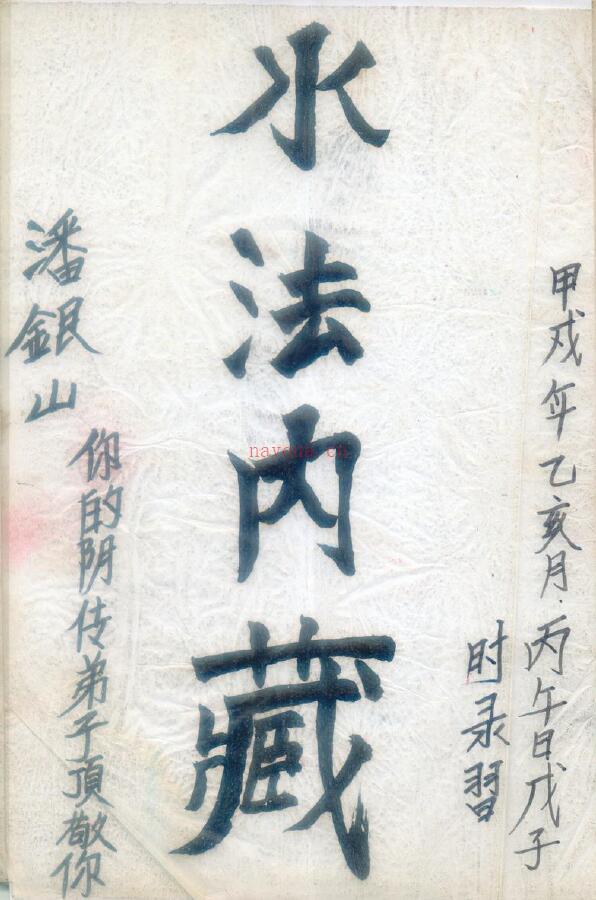 甲戍年乙亥月.丙午日戊子
时录習
水法内藏
潘銀山
你的阴传弟子頂敬你